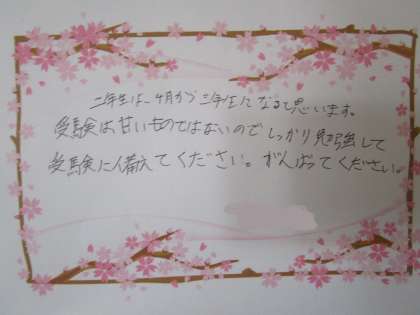 二年生は、4月から三年生になると思います。
受験は甘いものではないのでしっかり勉強して
受験に備えてください。がんばってください。